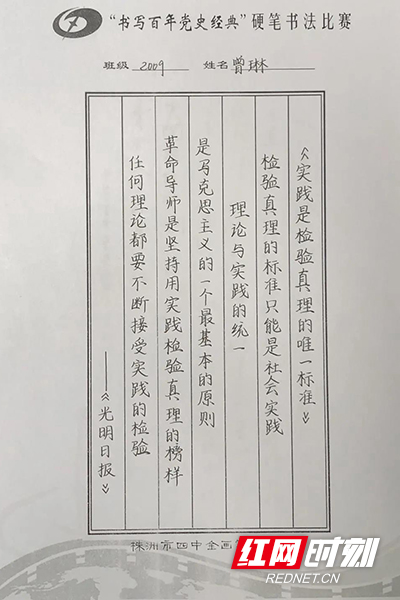 “书写百年党史经典”硬笔书法比赛
班级 2009 姓名 曾琳
《实践是检验真理的唯一标准》
检验真理的标准只能是社会实践
理论与实践的统一
是马克思主义的一个最基本的原则
革命导师是坚持用实践检验真理的榜样
任何理论都要不断接受实践的检验
——《光明日报》
株洲市四中
红网时刻
REDNET.CN